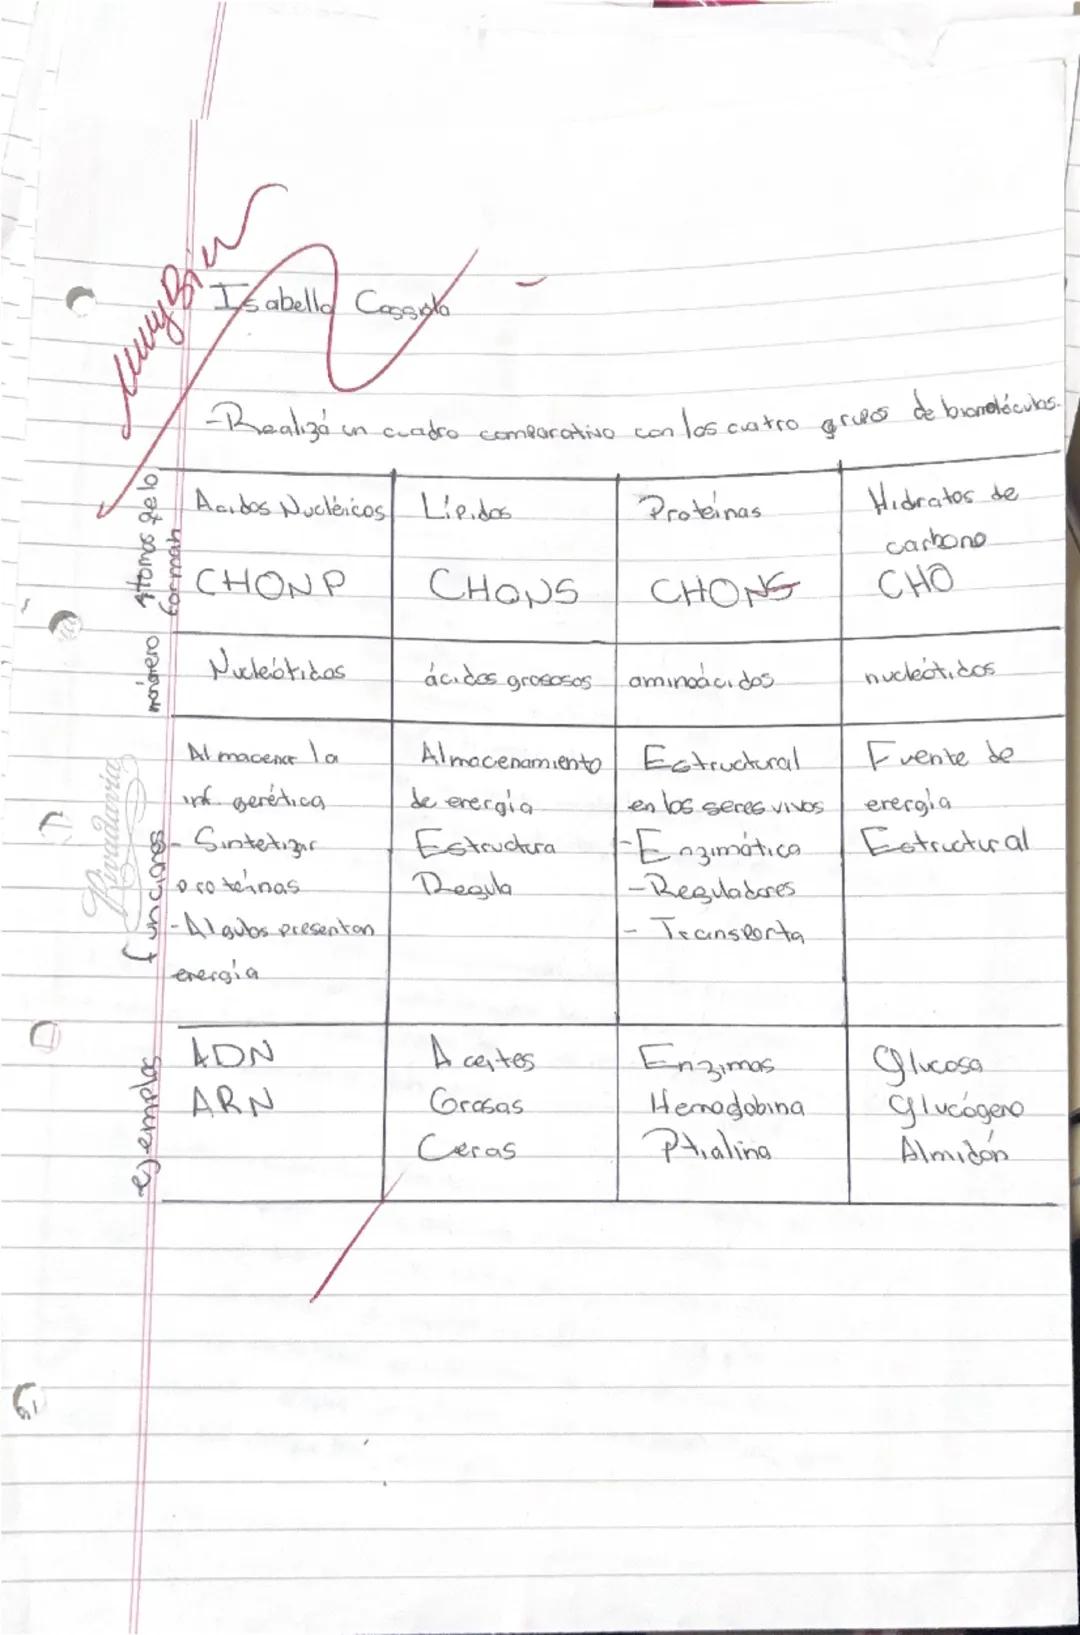 muy Bien
Isabella
-Realizá un cuadro comparativo con los cuatro grupos de biomoléculas.
Átomos qe lo forman
Acidos Nucléicos
CHONP
Lípidos
CHONS
Proteínas
CHONS
Hidratos de
carbono
CHO
monómero
Nucleótidos
ácidos grososos
aminoácidos
nucleótidos
funciones
Almacenar la
inf. genética
- Sintetizar
proteínas
- Algubs presentan
energía
Almacenamiento
de energía
Estructura
Regula
Estructural
en los seres vivos
- Enzimática
- Reguladores
- Transporta
Fuente de
energía
Estructural
ejemplos
ADN
ARN
Aceites
Grasas
Ceras
Enzimas
Hemoglobina
Ptialina
Glucosa
Glucógeno
Almidón
Rivadavia